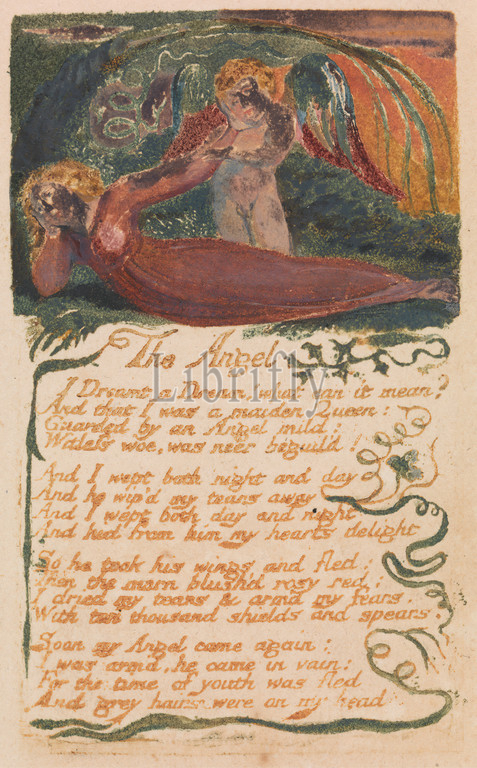 The Angel
I Dreamt a Dream! what can it mean?
Librifly
And that I was a maiden Queen:
Guarded by an Angel mild:
Witless woe, was neer beguil'd!
And I wept both night and day
And he wip'd my tears away
And I wept both day and night
And hid from him my hearts delight
So he took his wings and fled:
Then the morn blush'd rosy red:
I dried my tears & armd my fears,
With ten thousand shields and spears.
Soon my Angel came again:
I was arm'd, he came in vain:
For the time of youth was fled
And grey hairs were on my head